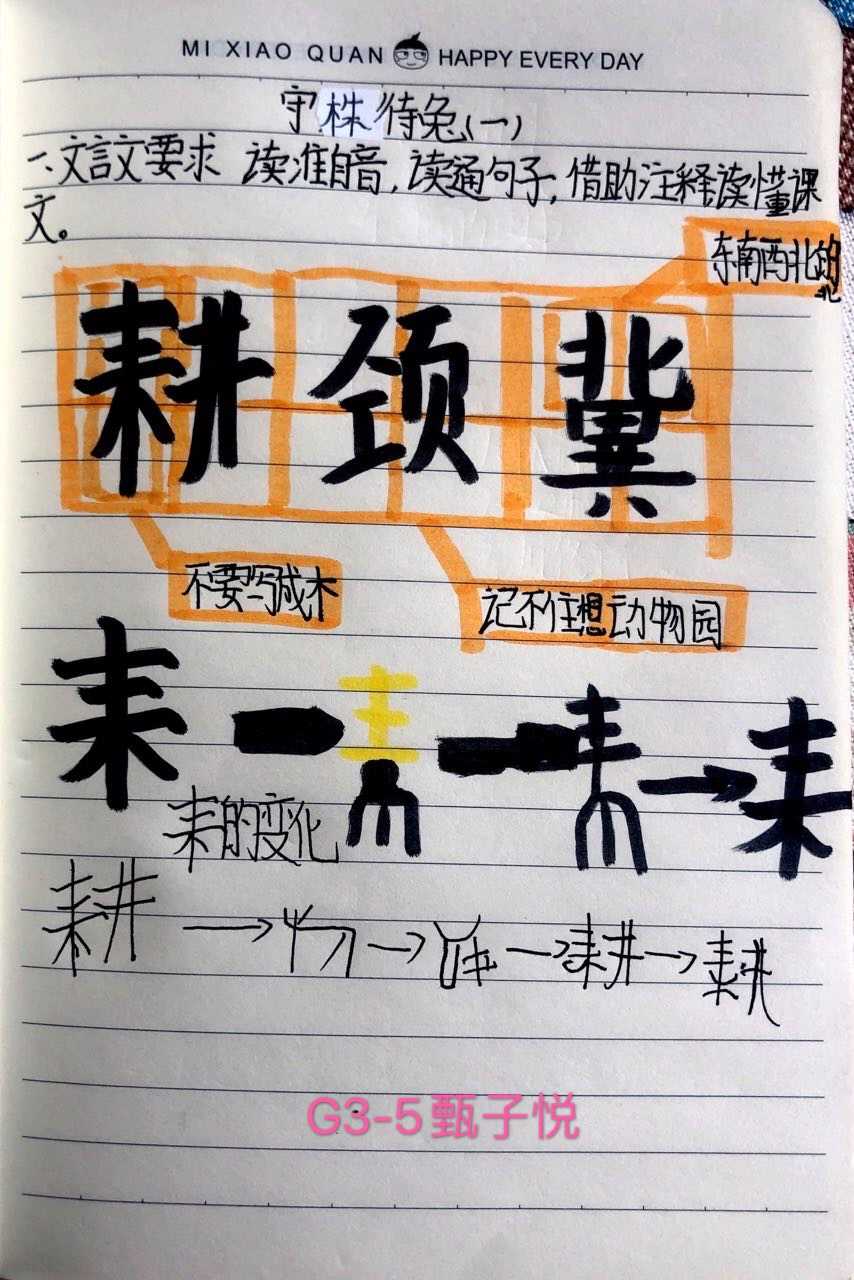 MI XIAO QUAN HAPPY EVERY DAY
守株待兔(一)
一、文言文要求 读准自音,读通句子,借助注释读懂课
文。
东南西北的
北
耕 颈 冀
不要写成木
记不住想动物园
耒 耒 耒
耒的变化
耕 耕 耕
G3-5甄子悦